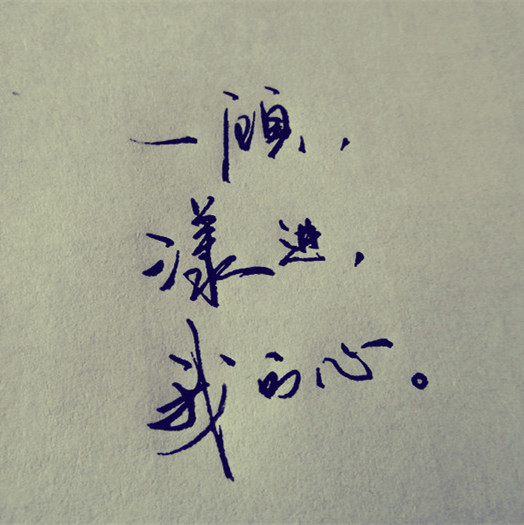 一顾，
漾进，
我的心。